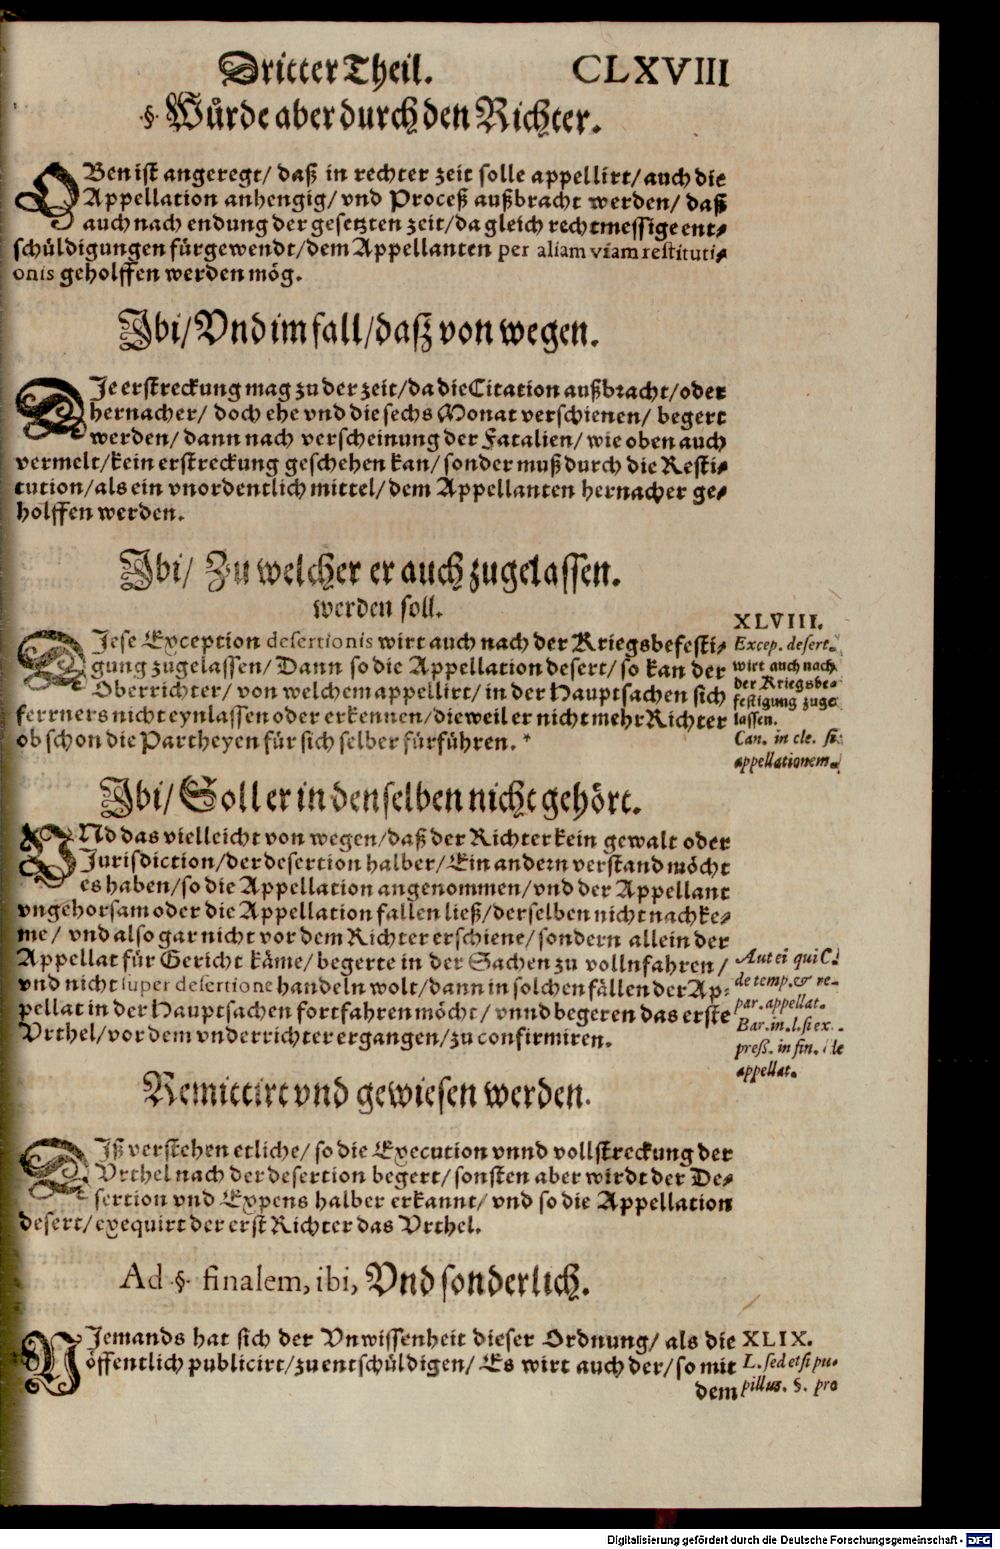 Dritter Theil. CLXVIII
§. Würde aber durch den Richter.
OBen ist angeregt/ daß in rechter zeit solle appellirt/ auch die
Appellation anhengig/ vnd Proceß außbracht werden/ daß
auch nach endung der gesetzten zeit/ da gleich rechtmessige ent-
schüldigungen fürgewendt/ dem Appellanten per aliam viam restituti-
onis geholffen werden mög.
Ibi/ Vnd im fall/ dasz von wegen.
DIe erstreckung mag zu der zeit/ da die Citation außbracht/ oder
hernacher/ doch ehe vnd die sechs Monat verschienen/ begert
werden/ dann nach verscheinung der Fatalien/ wie oben auch
vermelt/ kein erstreckung geschehen kan/ sonder muß durch die Resti-
tution/ als ein vnordentlich mittel/ dem Appellanten hernacher ge-
holffen werden.
Ibi/ Zu welcher er auch zugelassen.
werden soll.
DIese Exception desertionis wirt auch nach der Kriegsbefesti-
gung zugelassen/ Dann so die Appellation desert/ so kan der
Oberrichter/ von welchem appellirt/ in der Hauptsachen sich
ferrners nicht eynlassen oder erkennen/ dieweil er nicht mehr Richter
ob schon die Partheyen für sich selber fürführen. *
XLVIII.
Excep. desert.
wirt auch nach
der Kriegsbe-
festigung zuge
lassen.
Can. in cle. si
appellationem.
Ibi/ Soll er in denselben nicht gehört.
VNd das vielleicht von wegen/ daß der Richter kein gewalt oder
Jurisdiction/ der desertion halber/ Ein andern verstand möcht
es haben/ so die Appellation angenommen/ vnd der Appellant
vngehorsam oder die Appellation fallen ließ/ derselben nicht nachke-
me/ vnd also gar nicht vor dem Richter erschiene/ sondern allein der
Appellat für Gericht käme/ begerte in der Sachen zu vollnfahren/
vnd nicht super desertione handeln wolt/ dann in solchen fällen der Ap-
pellat in der Hauptsachen fortfahren möcht/ vnnd begeren das erste
Vrthel/ vor dem vnderrichter ergangen/ zu confirmiren.
Aut ei qui C.
de temp. & re-
par. appellat.
Bar. in. l. si ex
preß. in fin. de
appellat.
Remittirt vnd gewiesen werden.
DIß verstehen etliche/ so die Execution vnnd vollstreckung der
Vrthel nach der desertion begert/ sonsten aber wirdt der De-
sertion vnd Expens halber erkannt/ vnd so die Appellation
desert/ exequirt der erst Richter das Vrthel.
Ad §. finalem, ibi, Vnd sonderlich.
NIemands hat sich der Vnwissenheit dieser Ordnung/ als die
öffentlich publicirt/ zu entschüldigen/ Es wirt auch der/ so mit
dem
XLIX.
L. sed etsi pu-
pillus. §. pro
Digitalisierung gefördert durch die Deutsche Forschungsgemeinschaft - DFG